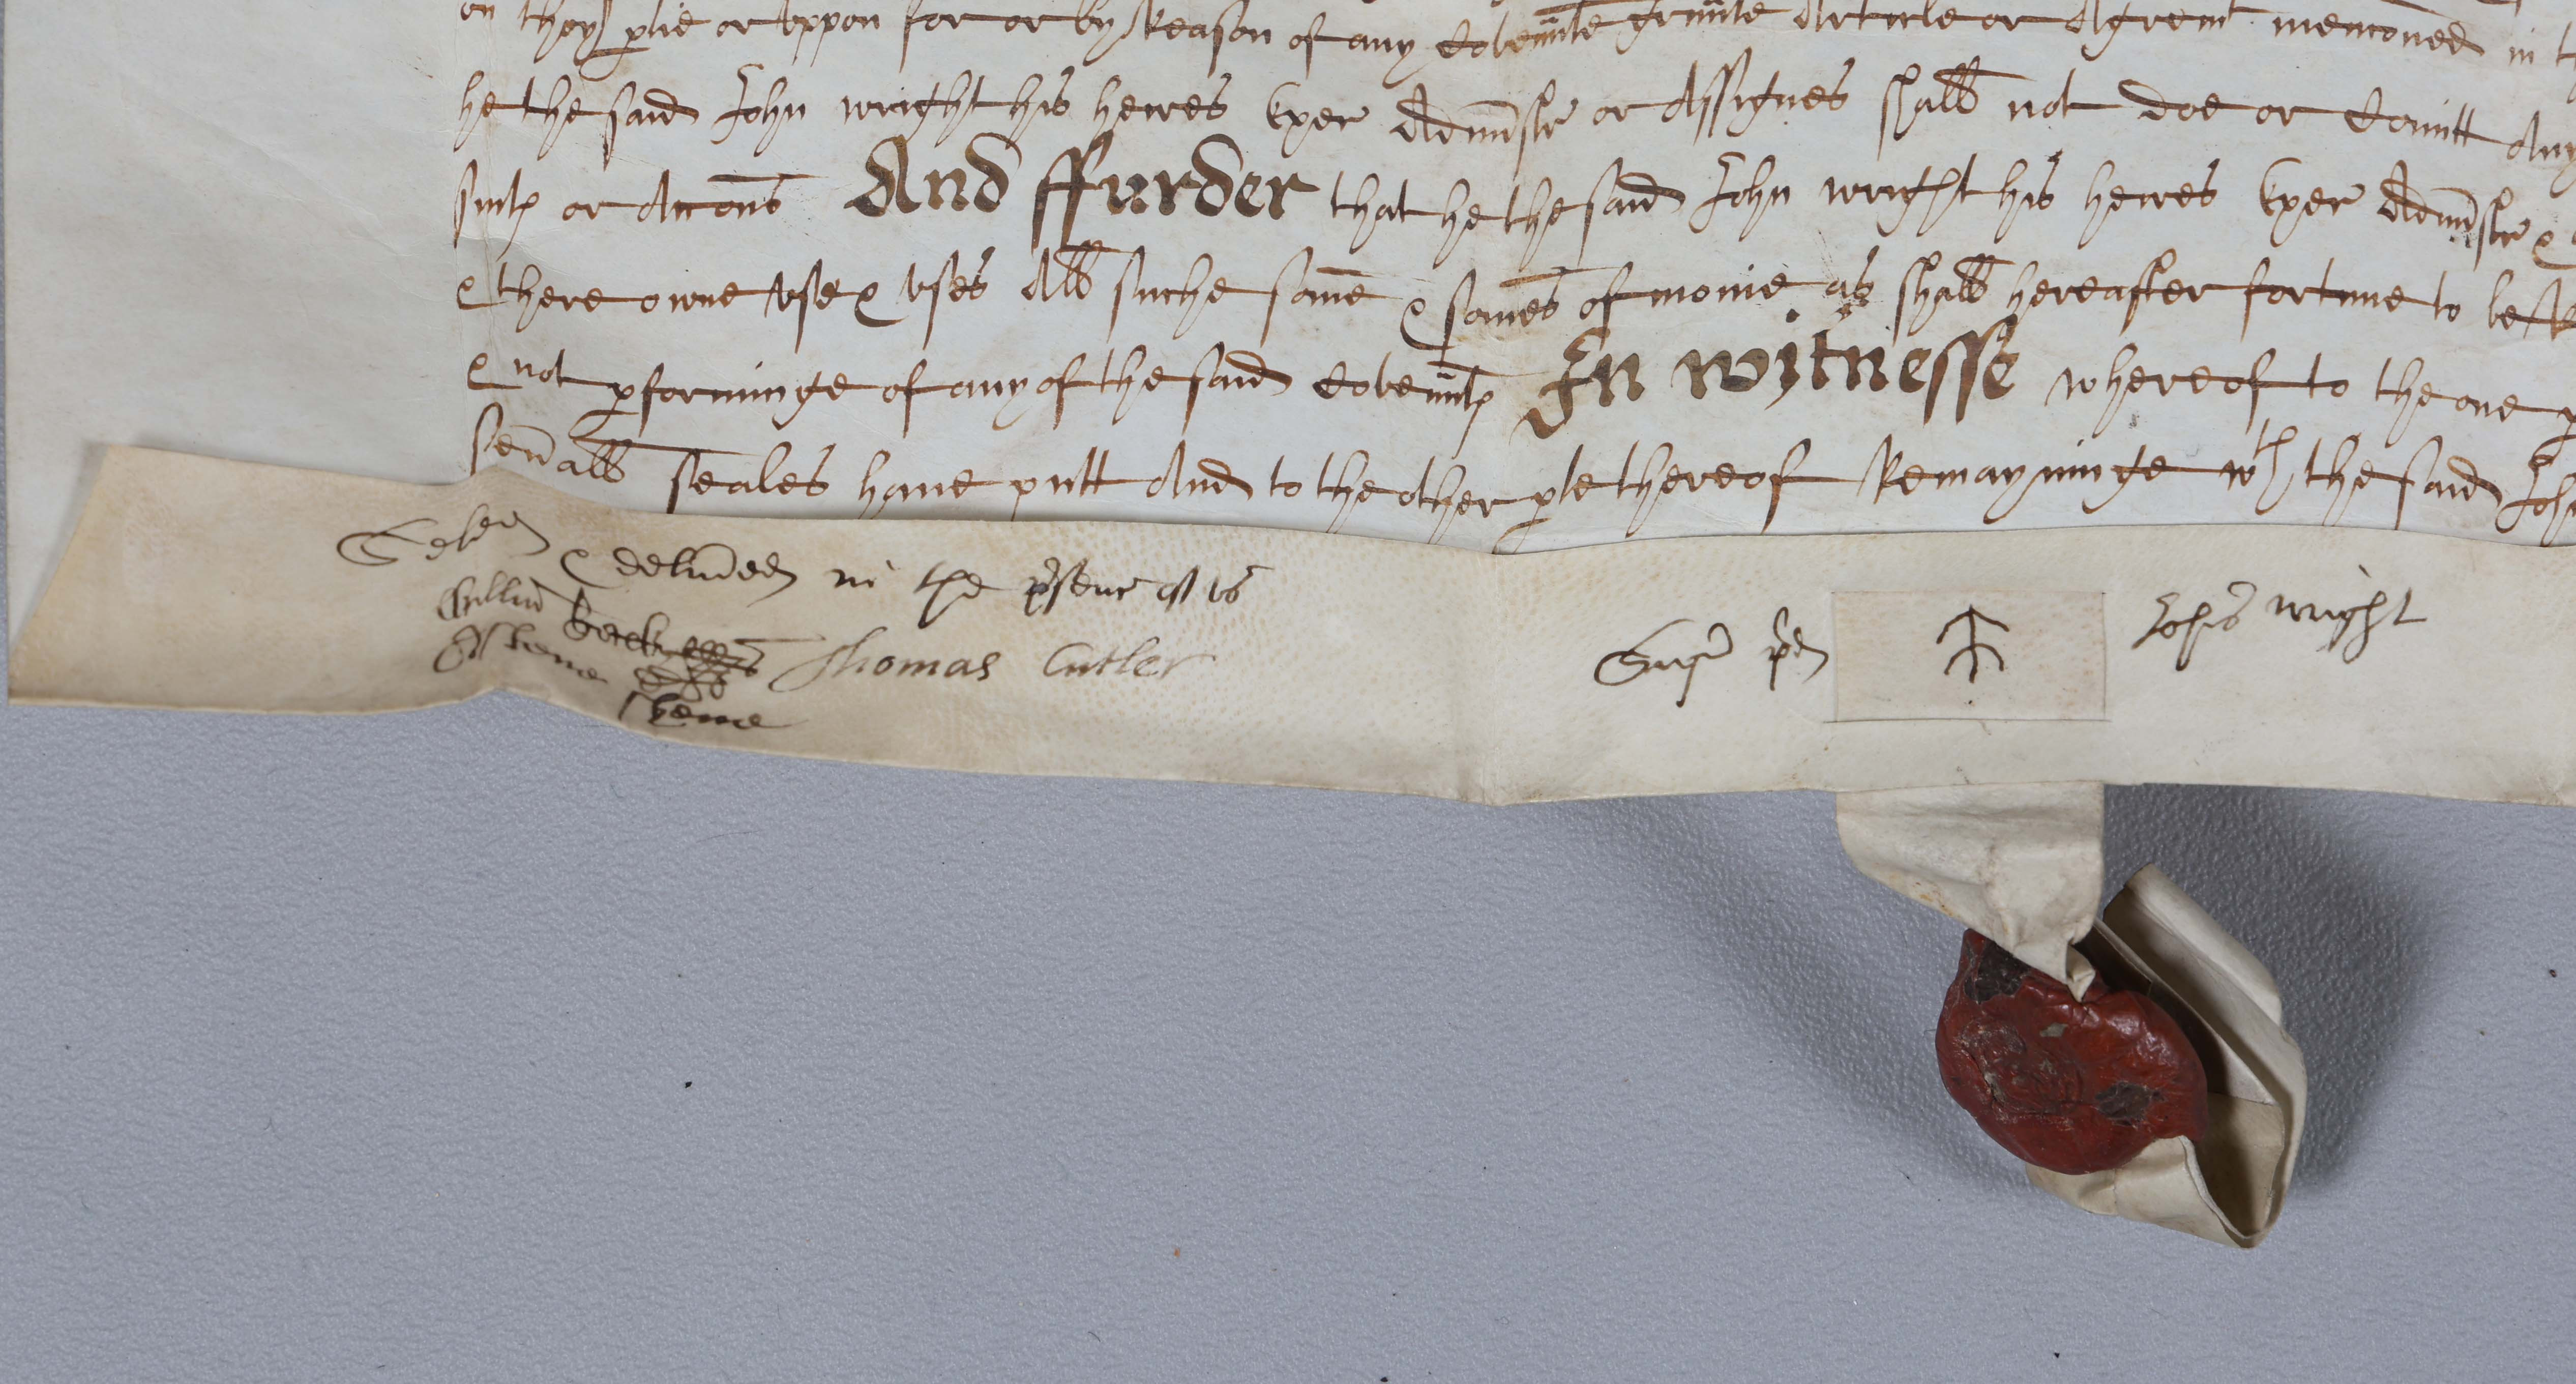 on theyr ptie or vppon for or by Reason of any Covennte grunte Article or Agremt mencõned in
he the said John wright his heires Exer Admistr or Assignes shall not doe or Comitt Any
suits or Accons And ffurder that he the said John wright his heires Exer Admistr &
& there owne vse & vses All suche some & somes of monie as shall hereafter fortune to be
& not pforminge of any of the said Covennts In witnesse whereof to the one
seuall seales haue putt And to the other pte thereof Remayninge wth the said John
Seled & deliued in the psenc of vs
Thomas Cutler
Sigñ pd Johis wright